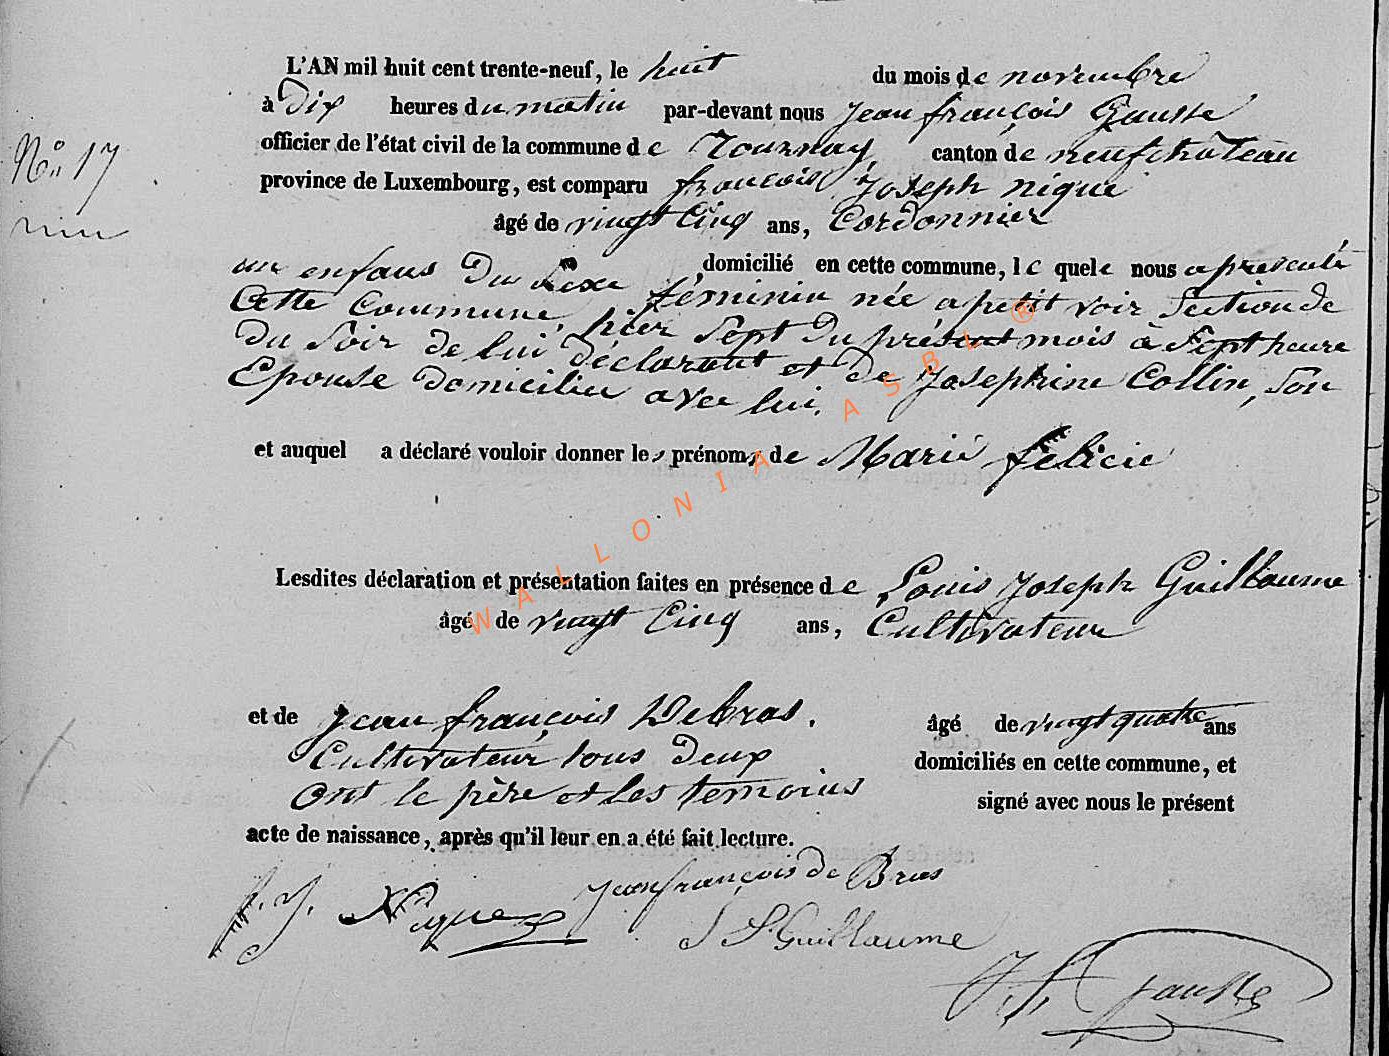 L'AN mil huit cent trente-neuf, le huit du mois de novembre
à Dix heures du matin par-devant nous Jean françois Gausse
officier de l'état civil de la commune de Tournay, canton de neufchâteau
province de Luxembourg, est comparu françois Joseph nique
N° 17
âgé de vingt Cinq ans, Cordonnier
domicilié en cette commune, le quele nous a presenté
un enfans Du Sexe féminin née a petit voir Section de
Cette Commune, hier Sept Du présent mois à Sept heure
Du Soir de lui déclarant et de Josephine Collin, Son
Epouse domicilieé avec lui.
et auquel a déclaré vouloir donner les prénoms de Marie félicie
Lesdites déclaration et présentation faites en présence de Louis Joseph Guillaume
âgé de vingt Cinq ans, Cultivateur
et de Jean françois Debras. âgé de vingt quatre ans
Cultivateur tous Deux domiciliés en cette commune, et
Ont le père et les temoins signé avec nous le présent
acte de naissance, après qu'il leur en a été fait lecture.
f. J. Nique Jean françois de Bras
Guillaume
J. f. Gausse
WALLONIA ASBL ®